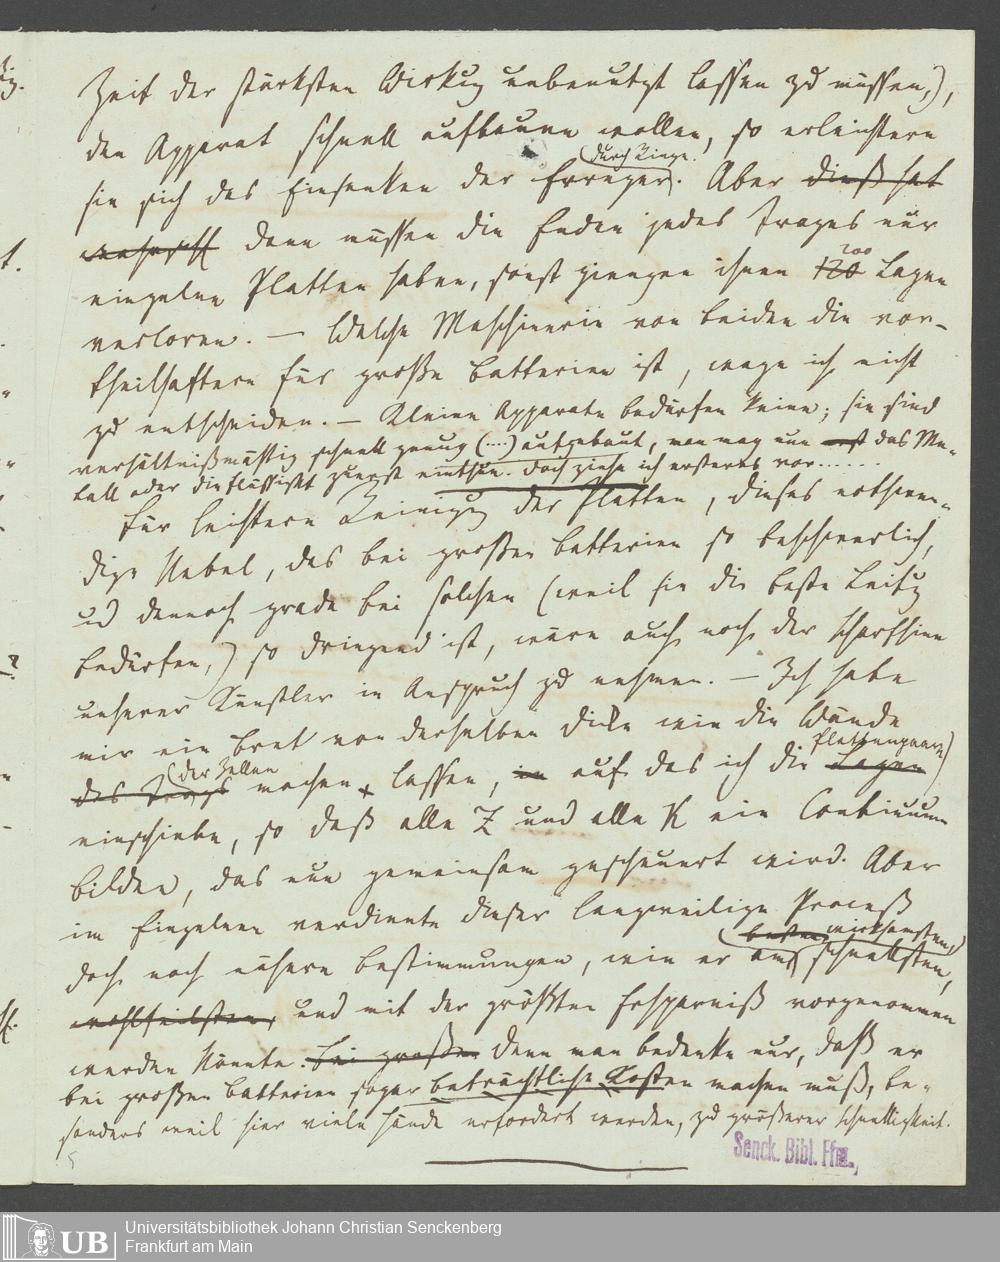 Zeit der stärksten Wirkug unbenutzt lassen zu müssen,),
den Apparat schnell aufbauen wollen, so erleichtern
sie sich das Einsenken der Erreger (durch Ringe. Aber dieß hat
denn müssen die Enden jedes Troges nur
einzelne Platten haben, sonst giengen ihnen 120 200 Lagen
verloren. — Welche Maschinerie von beiden die vor-
theilhaftere für große Batterien ist, wage ich nicht
zu entscheiden. — Kleine Apparate bedürfen keine; sie sind
verhältnißmässig schnell genug (....) aufgebaut, man mag nun erst das Me-
tall oder die Flüssigkt zuerst einthun. Doch ziehe ich ersteres vor......
Für leichtere Reinigug der Platten, dieses nothwen-
dige Uebel, das bei großen Batterien so beschwerlich,
ud dennoch grade bei solchen (weil sie die beste Leitug
bedürfen,) so dringend ist, wäre auch noch der Scharfsinn
unserer Künstler in Anspruch zu nehmen. — Ich habe
mir ein Bret von derselben Dicke wie die Wände
des Trogs (der Zellen machen lassen, in auf das ich die Lagen Plattenpaare)
einschiebe, so daß alle Z und alle K ein Continuum
bilden, das nun gemeinsam gescheuert wird. Aber
im Einzelnen verdiente dieser langweilige Proceß
doch noch nähere Bestimmungen, wie er am schnellsten, (besten wirksamsten,)
wohlfeilsten, und mit der größten Ersparniß vorgenommen
werden könnte. bei großen Denn man bedenke nur, daß er
bei großen Batterien sogar beträchtliche Kosten machen muß, be-
sonders weil hier viele Hände erfordert werden, zu größerer Schnelligkeit.
5
Senck. Bibl. Ffm.
UB
Universitätsbibliothek Johann Christian Senckenberg
Frankfurt am Main